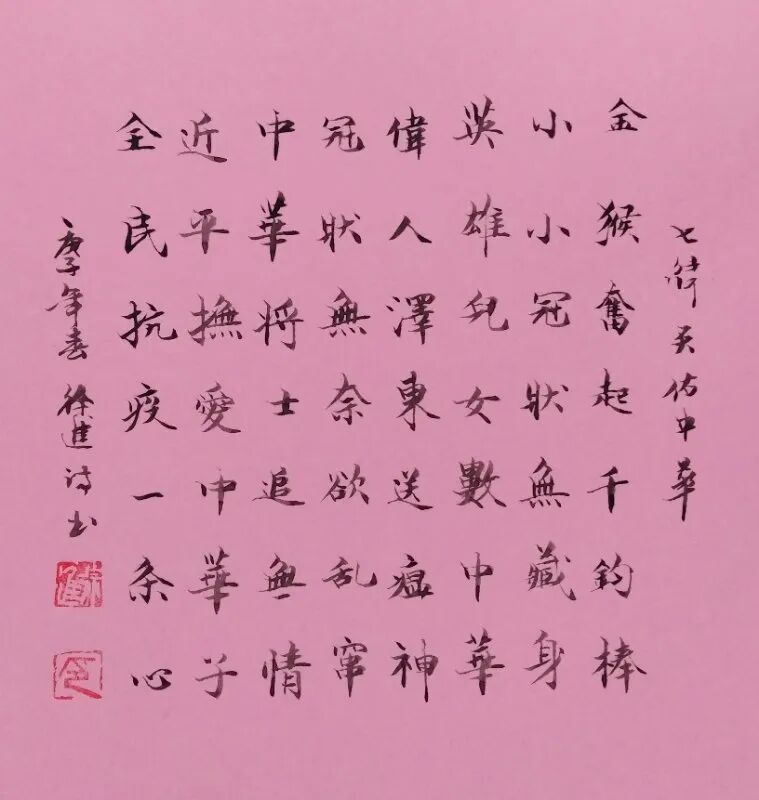 七律 天佑中華
金猴奮起千鈞棒
小小冠狀無藏身
英雄兒女數中華
偉人澤東送瘟神
冠狀無奈欲乱窜
中華将士追無情
近平撫愛中華子
全民抗疫一条心
庚子年春 徐進诗书